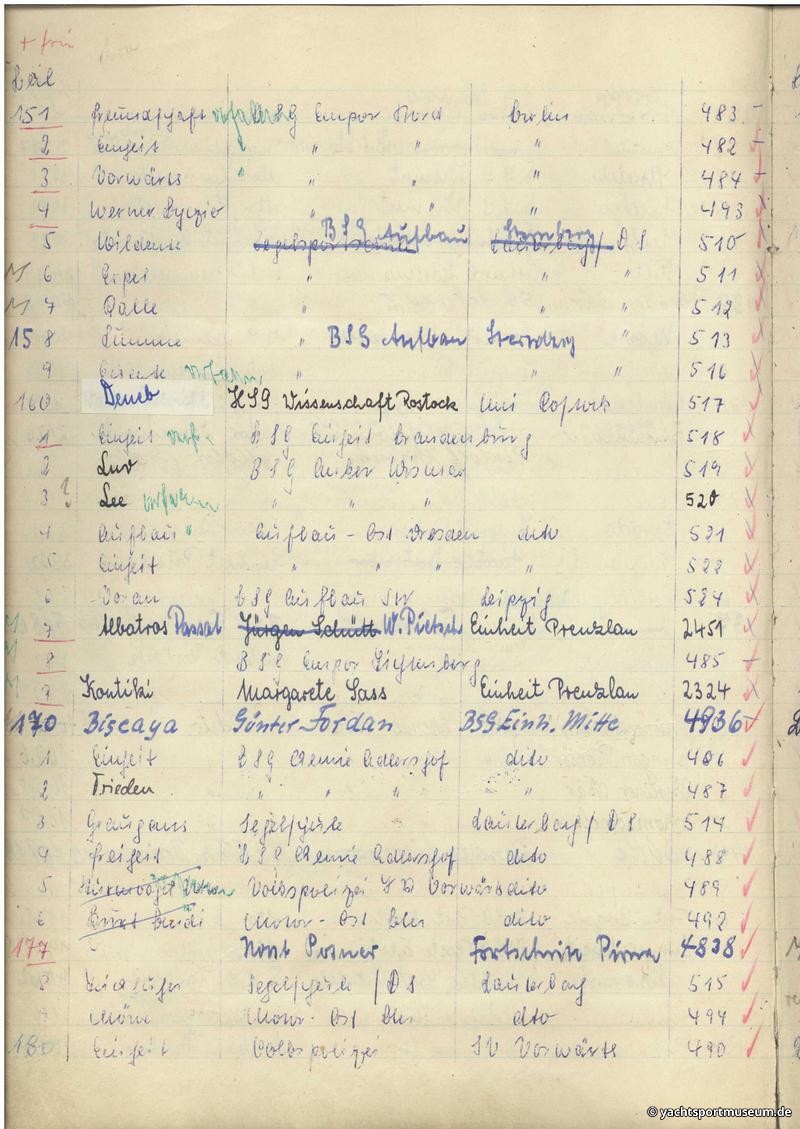 + frei
Zeil
151 Freundschaft verfahren BSG Empor Nord Berlin 483 -
2 Einheit " " " " 482 +
3 Vorwärts " " " " 484 +
4 Werner " " " 493 x
5 Wildente BSG Aufbau Sternberg DS 510 x
M 6 Erpel " " " 511 x
M 7 Qualle " " " 512 x
158 " BSG Aufbau Sternberg " 513 x
9 verfahren " " " 516 x
160 Deneb HSG Wissenschaft Rostock Uni Rostock 517 x
1 Einheit verf. BSG Einheit Brandenburg 518 x
2 Luv BSG Anker Wismar 519 x
3 ? Lee verfahren " " " 520 x
4 Aufbau " Aufbau - Ost Dresden dito 521 x
5 Einheit " " " " 522 x
6 Voran BSG Aufbau SW Leipzig 524 x
M 7 Albatros Passat Jürgen Schütt W. Pietsch Einheit Prenzlau 2451 x
M 8 BSG Empor Lichtenberg 485 +
M 9 Kontiki Margarete Sass Einheit Prenzlau 2324 x
170 Biscaya Günter Jordan BSG Einh. Mitte 4936 ✓
1 Einheit BSG Chemie Adlershof dito 486 ✓
2 Frieden " " " " 487 ✓
3 Graugans Segelschule Lauterbach / DS 514 ✓
4 Freiheit BSG Chemie Adlershof dito 488 ✓
5 Volkspolizei SV Vorwärts dito 489 ✓
6 Motor - Ost dito 492 ✓
177 Posner Fortschritt Pirna 4838 ✓
8 Segelschule / DS Lauterbach 515 ✓
9 Möwe Motor - Ost dito 494 ✓
180 Einheit Volkspolizei SV Vorwärts 490 ✓
© yachtsportmuseum.de